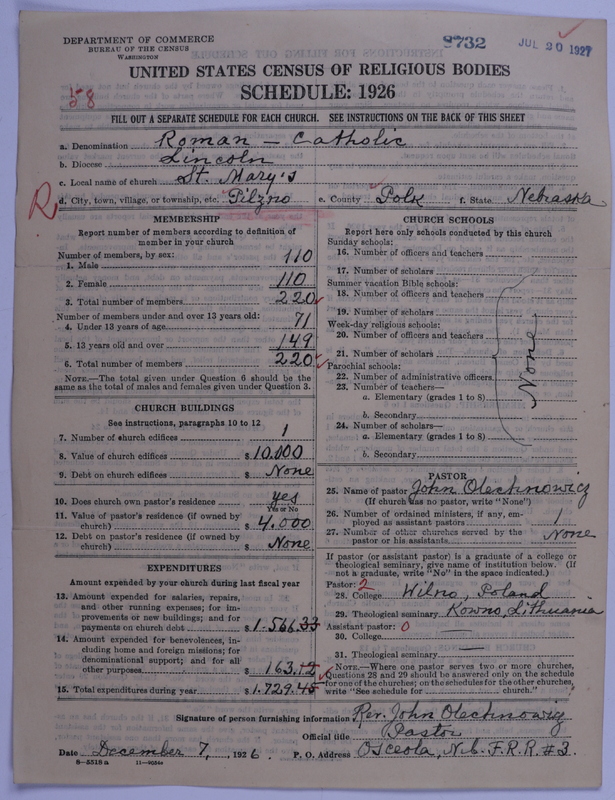 DEPARTMENT OF COMMERCE
BUREAU OF THE CENSUS
WASHINGTON
8732
JUL 20 1927
UNITED STATES CENSUS OF RELIGIOUS BODIES
SCHEDULE: 1926
58
FILL OUT A SEPARATE SCHEDULE FOR EACH CHURCH. SEE INSTRUCTIONS ON THE BACK OF THIS SHEET
a. Denomination Roman - Catholic
b. Diocese Lincoln
c. Local name of church St. Mary's
R
d. City, town, village, or township, etc. Pilzno e. County Polk f. State Nebraska
MEMBERSHIP
Report number of members according to definition of
member in your church
Number of members, by sex:
1. Male 110
2. Female 110
3. Total number of members 220
Number of members under and over 13 years old:
4. Under 13 years of age 71
5. 13 years old and over 149
6. Total number of members 220
NOTE.—The total given under Question 6 should be
same as the total of males and females given under Question 3.
CHURCH BUILDINGS
See instructions, paragraphs 10 to 12
7. Number of church edifices 1
8. Value of church edifices $ 10.000
9. Debt on church edifices $ None
10. Does church own pastor's residence yes
Yes or No
11. Value of pastor's residence (if owned by
church) $ 4.000
12. Debt on pastor's residence (if owned by
church) $ None
EXPENDITURES
Amount expended by your church during last fiscal year
13. Amount expended for salaries, repairs,
and other running expenses; for im-
provements or new buildings; and for
payments on church debt $ 1.566.33
14. Amount expended for benevolences, in-
cluding home and foreign missions; for
denominational support; and for all
other purposes $ 163.12
15. Total expenditures during year $ 1.729.45
CHURCH SCHOOLS
Report here only schools conducted by this church
Sunday schools:
16. Number of officers and teachers
17. Number of scholars
Summer vacation Bible schools:
18. Number of officers and teachers
19. Number of scholars
Week-day religious schools:
20. Number of officers and teachers
21. Number of scholars
Parochial schools:
22. Number of administrative officers
23. Number of teachers—
a. Elementary (grades 1 to 8)
b. Secondary
24. Number of scholars—
a. Elementary (grades 1 to 8)
b. Secondary
None
PASTOR
25. Name of pastor John Olechnowicz
(If church has no pastor, write "None")
26. Number of ordained ministers, if any, em-
ployed as assistant pastors 1
27. Number of other churches served by the
pastor or his assistants None
If pastor (or assistant pastor) is a graduate of a college or
theological seminary, give name of institution below. (If
not a graduate, write "No" in the space indicated.)
Pastor: 2
28. College Wilno, Poland
29. Theological seminary Kowno, Lithuania
Assistant pastor: 0
30. College
31. Theological seminary
NOTE.—Where one pastor serves two or more churches,
Questions 28 and 29 should be answered only on the schedule
for one of the churches; on the schedules for the other churches,
write "See schedule for church."
Signature of person furnishing information Rev. John Olechnowicz
Official title Pastor
Date December 7, 1926. P. O. Address Osceola, Neb. F.R.R. #3.
8—5518 a 11—9054